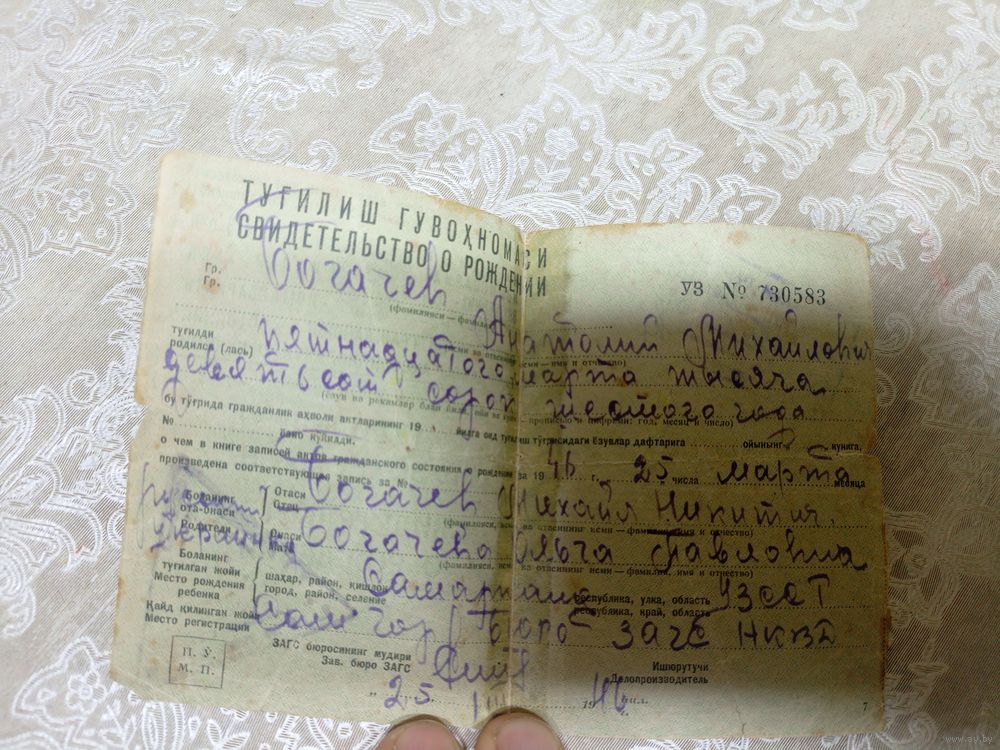 ТУҒИЛИШ ГУВОҲНОМАСИ
СВИДЕТЕЛЬСТВО О РОЖДЕНИИ
УЗ № 730583
Гр.
Гр. Богачев
(фамилияси — фамилия)
Анатолий Михайлович
туғилди
родился (лась) пятнадцатого марта тысяча
девятьсот сорок шестого года
бу тўғрида гражданлик аҳволи актларининг 19 йилга оид туғилиш тўғрисидаги ёзувлар дафтарига ойынынг кунига,
№ қайд қўйилди.
о чем в книге записей актов гражданского состояния о рождении за 1946 г. 25 числа марта месяца
произведена соответствующая запись за №
Боланинг ота-онаси
Родители
Отаси
Отец Богачев Михаил Никитич,
(фамилияси, исми ва отасининг исми — фамилия, имя и отчество)
Онаси
Мать Богачева Ольга Павловна
(фамилияси, исми ва отасининг исми — фамилия, имя и отчество)
Украин
Боланинг туғилган жойи
Место рождения ребенка
шаҳар, район, қишлоқ
город, район, селение Самарканд
республика, ўлка, область
республика, край, область УзССР
Қайд қилинган жойи
Место регистрации Сам гор бюро ЗАГС НКВД
П. Ў.
М. П.
ЗАГС бюросининг мудири
Зав. бюро ЗАГС
Ишюрутучи
Делопроизводитель
„ 25 1946 йил.
г.
7
www.ay.by